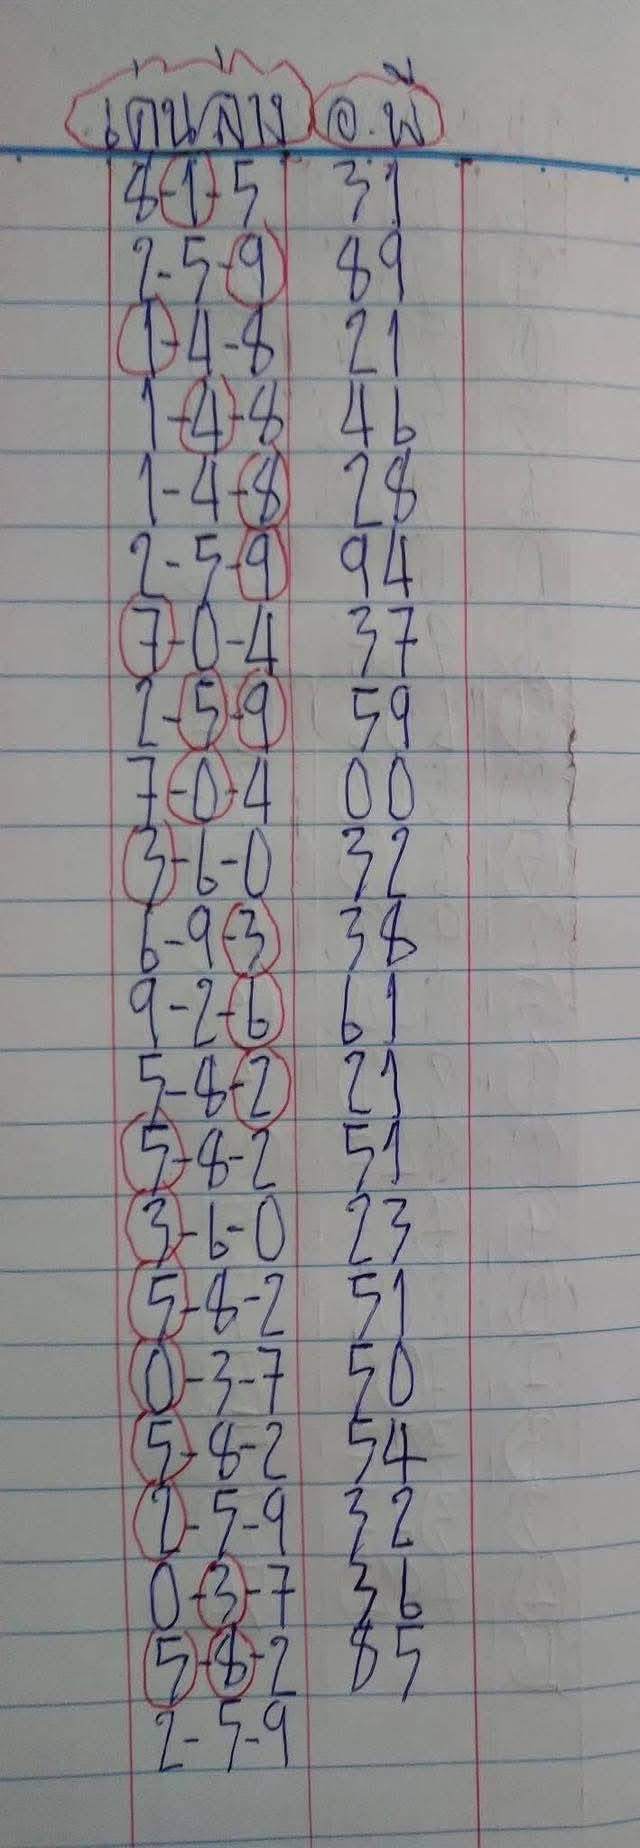 เด่นล่าง อ.พี่
8-1-5 31
2-5-9 89
1-4-8 21
1-4-8 46
1-4-8 28
2-5-9 94
7-0-4 37
2-5-9 59
7-0-4 00
3-6-0 32
6-9-3 38
9-2-6 61
5-8-2 21
5-8-2 51
3-6-0 23
5-8-2 51
0-3-7 50
5-8-2 54
2-5-9 32
0-3-7 36
5-8-2 85
2-5-9